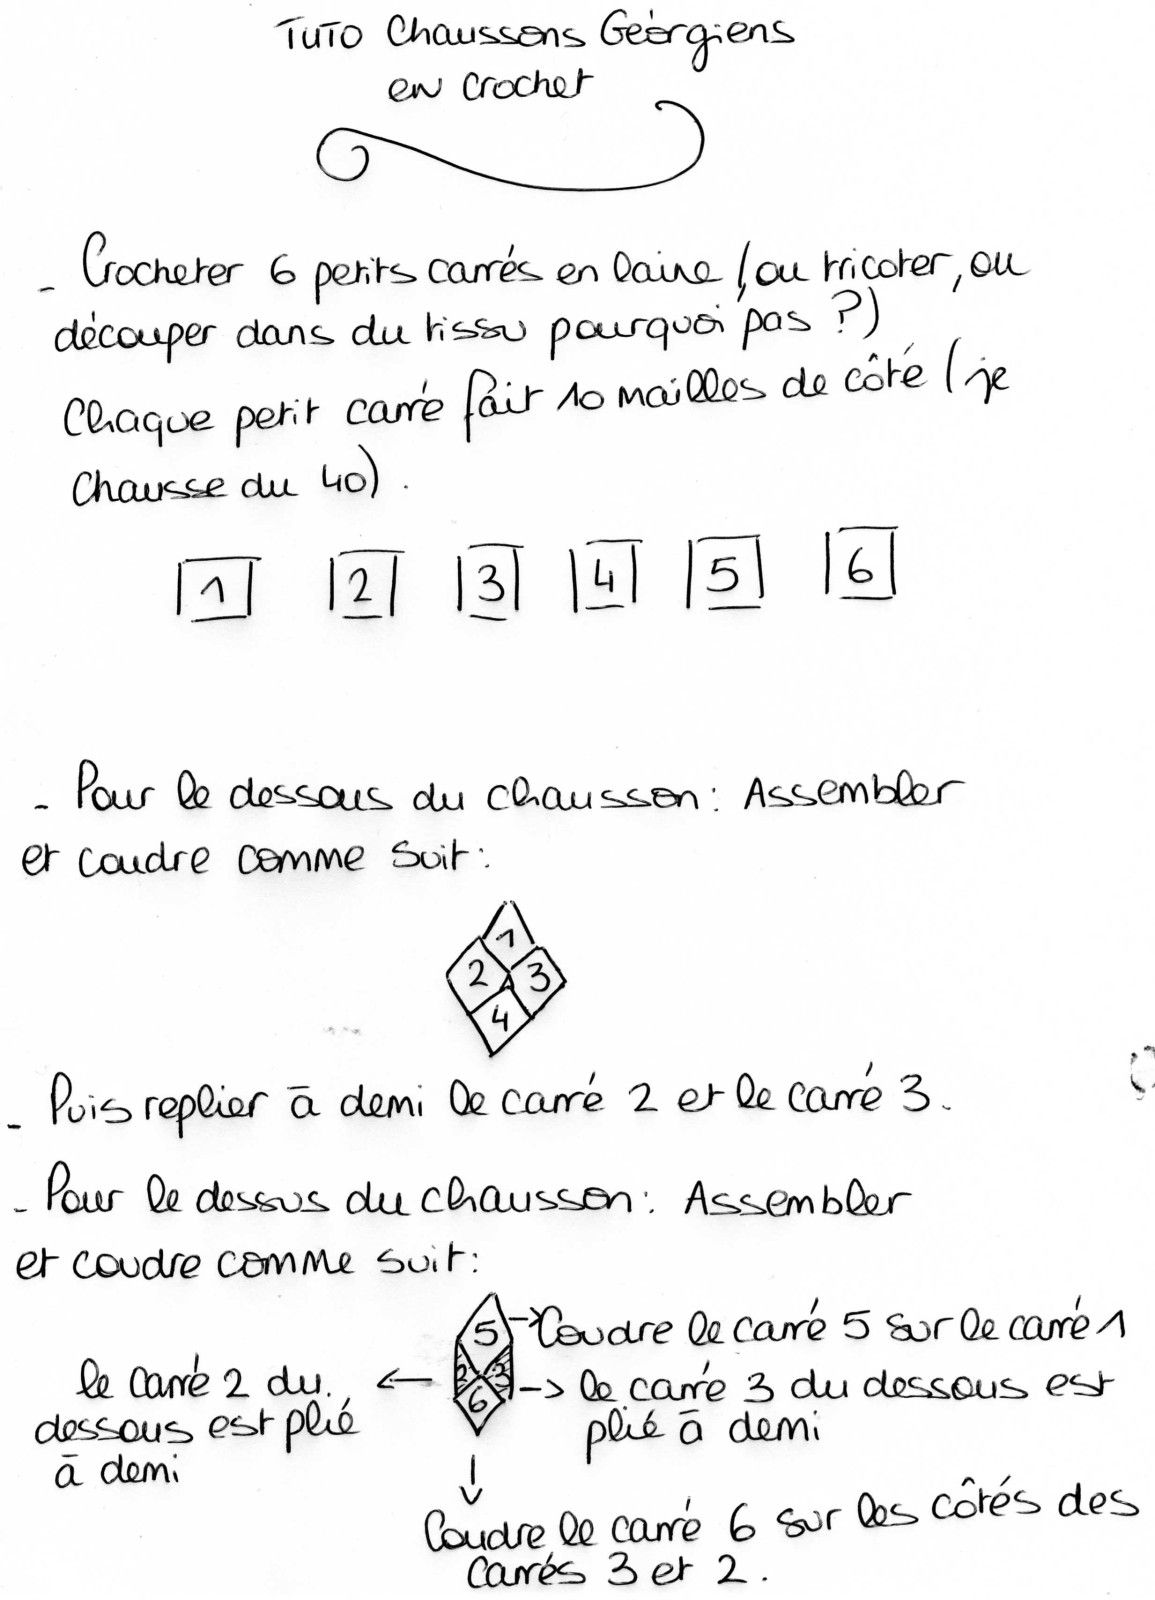 TUTO Chaussons Géorgiens
en crochet
- Crocheter 6 petits carrés en laine (ou tricoter, ou
découper dans du tissu pourquoi pas ?)
Chaque petit carré fait 10 mailles de côté (je
chausse du 40).
1 2 3 4 5 6
- Pour le dessous du chausson : Assembler
et coudre comme suit :
1
2 3
4
- Puis replier à demi le carré 2 et le carré 3.
- Pour le dessus du chausson : Assembler
et coudre comme suit :
5 -> Coudre le carré 5 sur le carré 1
le carré 2 du
dessous est plié
à demi
<-
2 3
-> le carré 3 du dessous est
plié à demi
6
↓
Coudre le carré 6 sur les côtés des
carrés 3 et 2.